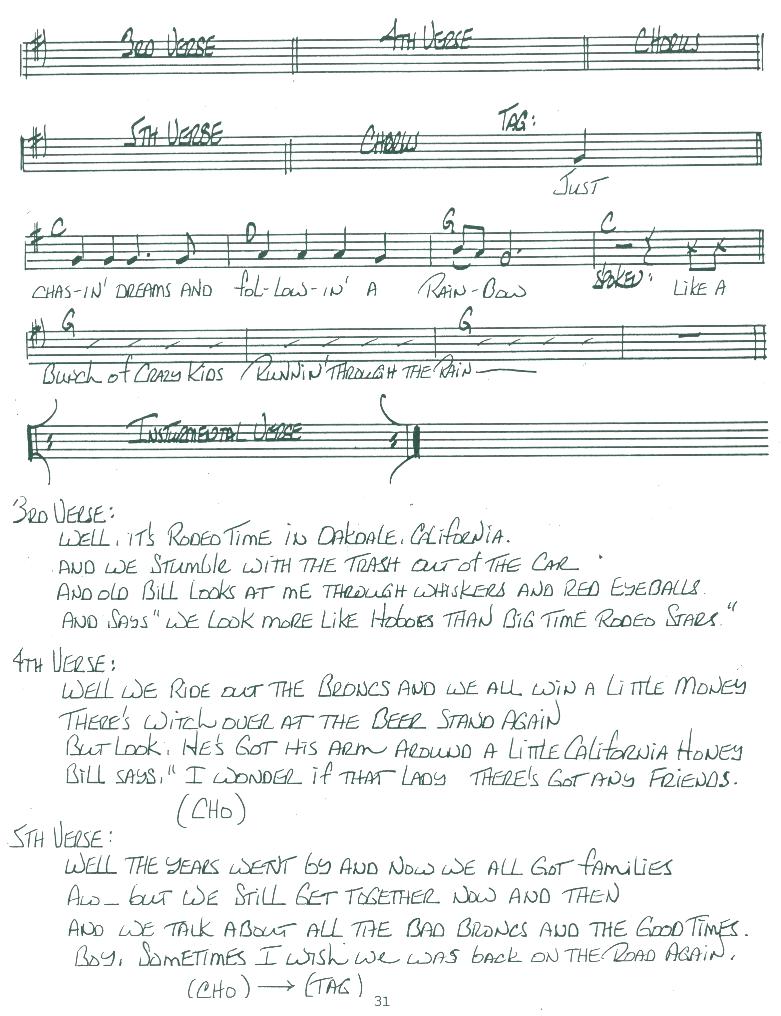 3RD VERSE 4TH VERSE CHORUS
5TH VERSE CHORUS TAG:
JUST
C D G C
CHAS-IN' DREAMS AND fOL-LOW-IN' A RAIN-BOW SPOKEN: LIKE A
G G
BUNCH of CRAZY KIDS RUNNIN' THROUGH THE RAIN
INSTURMENTAL VERSE
3RD VERSE:
WELL, IT'S RODEO TIME IN OAKDALE, CALIFORNIA.
AND WE STUMBLE WITH THE TRASH OUT of THE CAR.
AND OLD BILL LOOKS AT ME THROUGH WHISKERS AND RED EYEBALLS.
AND SAYS "WE LOOK MORE LIKE HOBOES THAN BIG TIME RODEO STARS."
4TH VERSE:
WELL WE RIDE OUT THE BRONCS AND WE ALL WIN A LITTLE MONEY
THERE'S WITCH OVER AT THE BEER STAND AGAIN
BUT LOOK, HE'S GOT HIS ARM AROUND A LITTLE CALIFORNIA HONEY
BILL SAYS, "I WONDER if THAT LADY THERE'S GOT ANY FRIENDS.
(CHO)
5TH VERSE:
WELL THE YEARS WENT by AND NOW WE ALL GOT fAMILIES
AW_ but WE STILL GET TOGETHER NOW AND THEN
AND WE TALK ABOUT ALL THE BAD BRONCS AND THE GOOD TIMES.
BOY, SOMETIMES I WISH WE WAS back ON THE ROAD AGAIN.
(CHO) → (TAG)
31